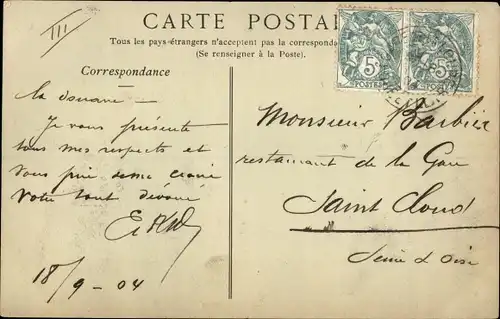 III
CARTE POSTA
Tous les pays étrangers n'acceptent pas la correspond
(Se renseigner à la Poste).
Correspondance
Je vous présente
tous mes respects et
vous prie de me croire
votre tout dévoué
18/9 - 04
5c 5c
POSTES
Monsieur Barbier
restaurant de la Gare
Saint Cloud
Seine & Oise